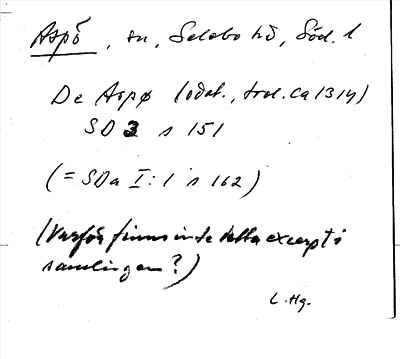 Aspö, sn, Selebo hd, Söd. l
De Aspø (odat., trol. ca 1314)
SD 3 s 151
(= SDa I:1 s 162)
(Varför finns inte detta excerpt i
samlingen?)
L. Hg.